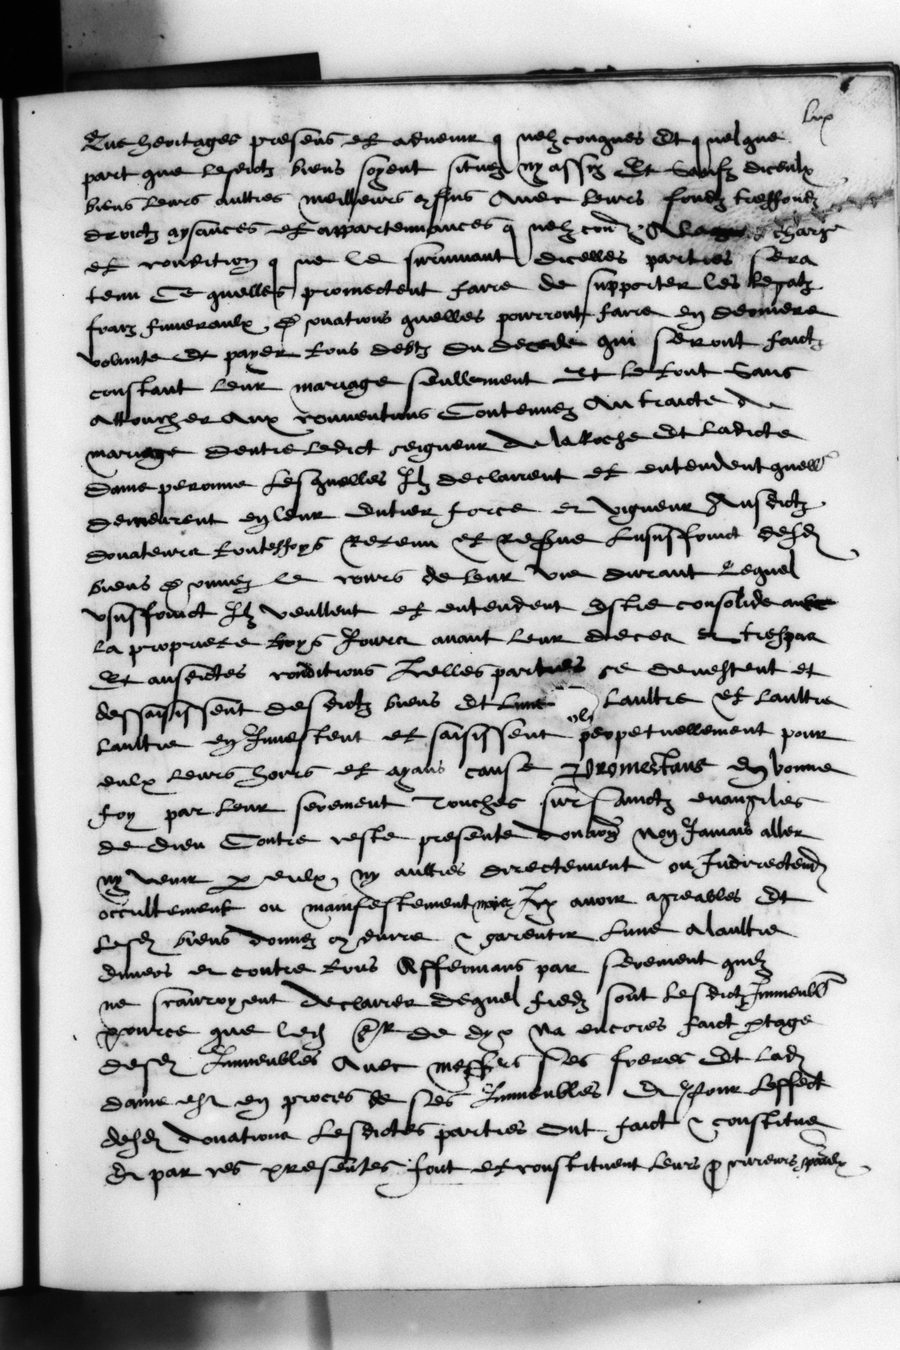 lxx
Que heritages presens et advenir q nelzconques et quelque
part que lesdictz biens soyent situez ny assiz Et sur iceulx
biens leurs aultres meilleurs Avec leurs fondz treffondz
droictz aysances et appartenances q nelzcon charge
et condition q ue le survivant dicelles parties sera
tenu Ce quelles promectent faire de supporter les legatz
fraiz funeraulx, quelles pourront faire en derniere
volunte et payer tous debtz du decede qui seront faictz
constant leur mariage seullement Et le tout sans
attoucher aux conventions Contenues Au traicte de
mariage dentre ledict seigneur de la Roche et ladicte
dame peronne lesquelles Ilz declairent et entendent quelles
demeurent en leur entier force et vigueur Ausdictz
donateurs toutesfoys retenu et reserve lusuffruict desd
biens donnez le cours de leur vie durant lequel
usuffruict Ilz veullent et entendent estre consolide avec
la propriete troys Jours avant leur deces et trespas
Et ausdictes conditions Icelles parties se devestent et
dessaisissent desdictz biens et lune laultre et laultre
laultre en Investent et saisissent perpetuellement pour
eulx leurs hoirs et ayans cause Promectans En bonne
foy par leur serement Touches sur sainctz evangiles
de dieu Contre ceste presente donation Non Jamais aller
ny venir p eulx, ny aultres directement ou Indirectement
occultement ou manifestement avoir agreables et
lesd biens donnez garentir lune alaultre
envers et contre tous Affermans par serement quilz
ne scauroyent declairer dequel fiedz sont lesdictz Immeubles
Pource que led de dyo Na encores faict ptage
desd Immeubles Avec messrs ses freres Et lad
dame est en proces de ses Immeubles Et pour leffect
desd donations lesdictes parties ont faict & constitue
Et par ces presentes font et constituent leurs procureurs